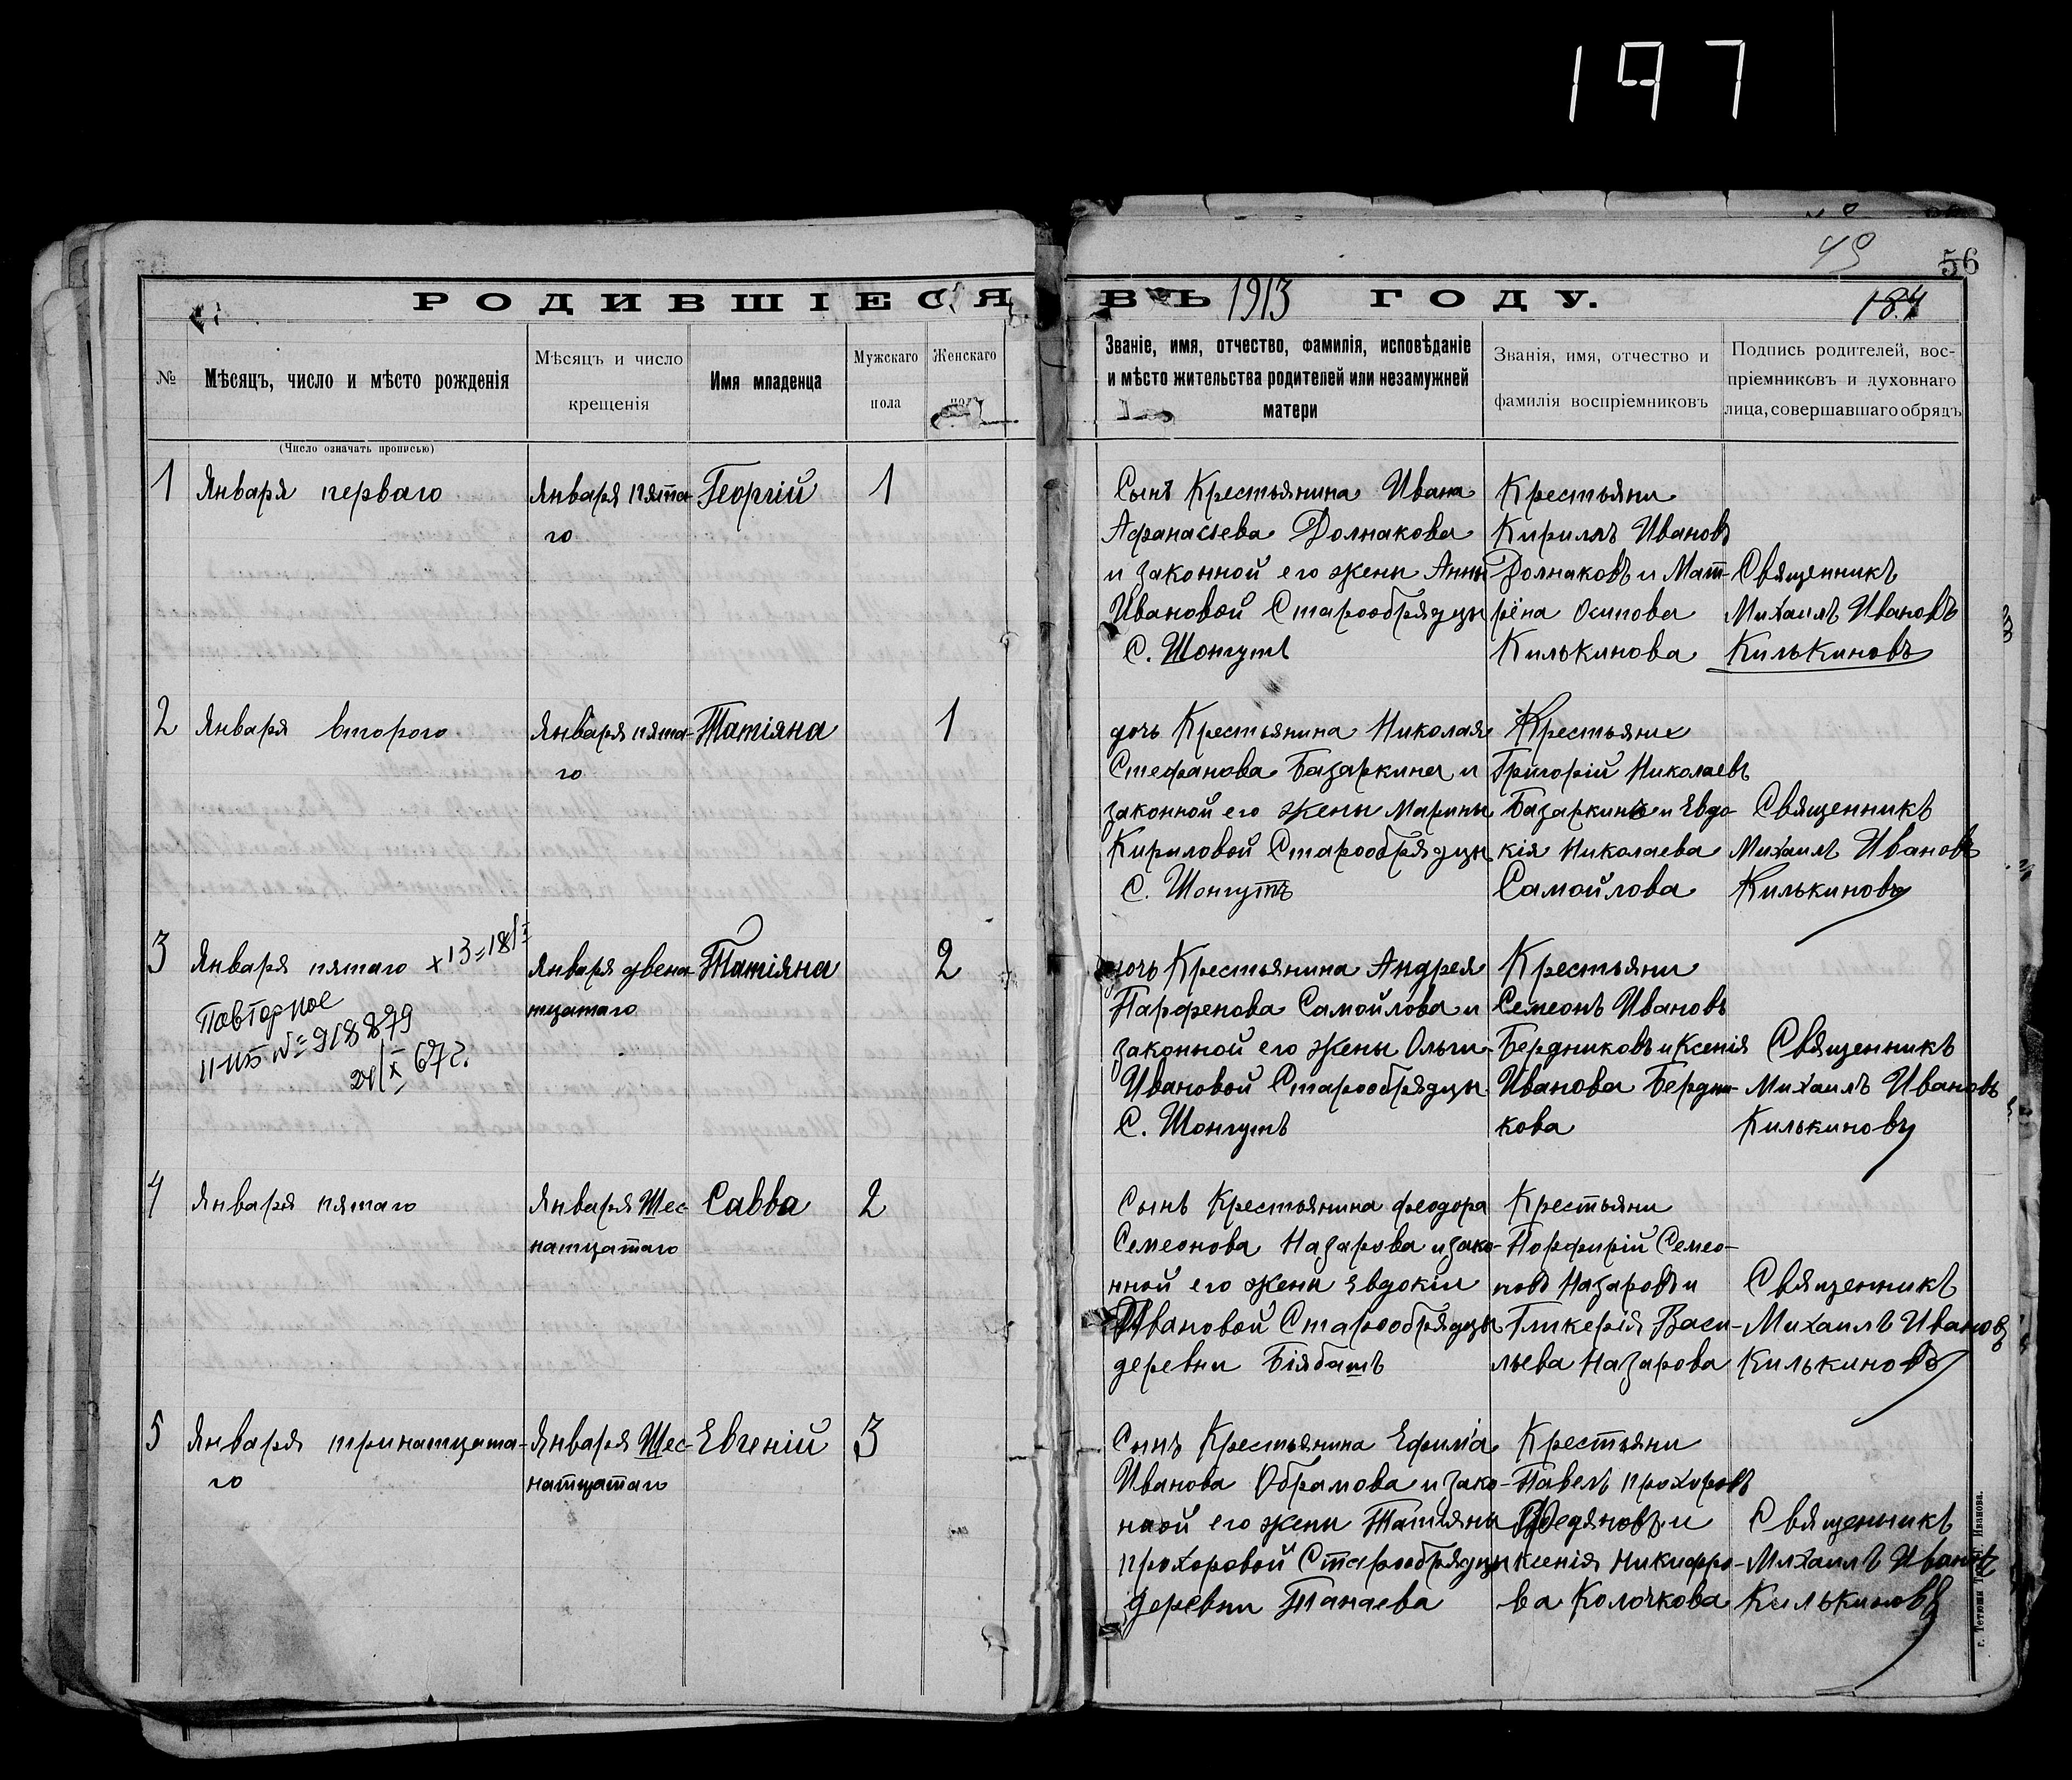 197
49
56
РОДИВШІЕСЯ ВЪ 1913 ГОДУ.
184
№
Мѣсяцъ, число и мѣсто рожденія
Мѣсяцъ и число
крещенія
Имя младенца
Мужскаго
пола
Женскаго
Званіе, имя, отчество, фамилія, исповѣданіе
и мѣсто жительства родителей или незамужней
матери
Званія, имя, отчество и
фамилія воспріемниковъ
Подпись родителей, вос-
пріемниковъ и духовнаго
лица, совершавшаго обрядъ
(Число означать прописью)
1
Января перваго
Января пята-
го
Георгій
1
Сынъ Крестьянина Ивана
Афанасьева Долнакова
и законной его жены Анны
Ивановой Старообрядцы
С. Шонгутъ
Крестьяни
Кирилъ Ивановъ
Долнаковъ и Мат-
рёна Осипова
Килькинова
Священникъ
Михаилъ Ивановъ
Килькиновъ
2
Января второго
Января пята-
го
Татіяна
1
дочь Крестьянина Николая
Стефанова Базаркина и
законной его жены Марины
Кириловой Старообрядцы
С. Шонгутъ
Крестьяне
Григорій Николаевъ
Базаркинъ и Евдо-
кія Николаева
Самойлова
Священникъ
Михаилъ Ивановъ
Килькиновъ
3
Января пятаго х13=18/I
Повторное
II-ИБ № 918879
67г.
Января двена-
тцатаго
Татіяна
2
дочь Крестьянина Андрея
Парфенова Самойлова и
законной его жены Ольги
Ивановой Старообрядцы
С. Шонгутъ
Крестьяни
Семеонъ Ивановъ
Бердниковъ и Ксенія
Иванова Бердни-
кова
Священникъ
Михаилъ Ивановъ
Килькиновъ
4
Января пятаго
Января Шес-
натцатаго
Савва
2
Сынъ Крестьянина Феодора
Семеонова Назарова и зако-
нной его жены Евдокіи
Ивановой Старообрядцы
деревни Біябашъ
Крестьяни
Порфирій Семео-
новъ Назаровъ и
Гликерія Васи-
льева Назарова
Священникъ
Михаилъ Ивановъ
Килькиновъ
5
Января тринатцата-
го
Января Шес-
натцатаго
Евгеній
3
Сынъ Крестьянина Ефима
Иванова Обрамова и зако-
нной его жены Татіяны
Прохоровой Старообрядцы
деревни Танаева
Крестьяни
Павелъ Прохоровъ
и
Ксенія Никифро-
ва Колочкова
Священникъ
Михаилъ Ивановъ
Килькиновъ